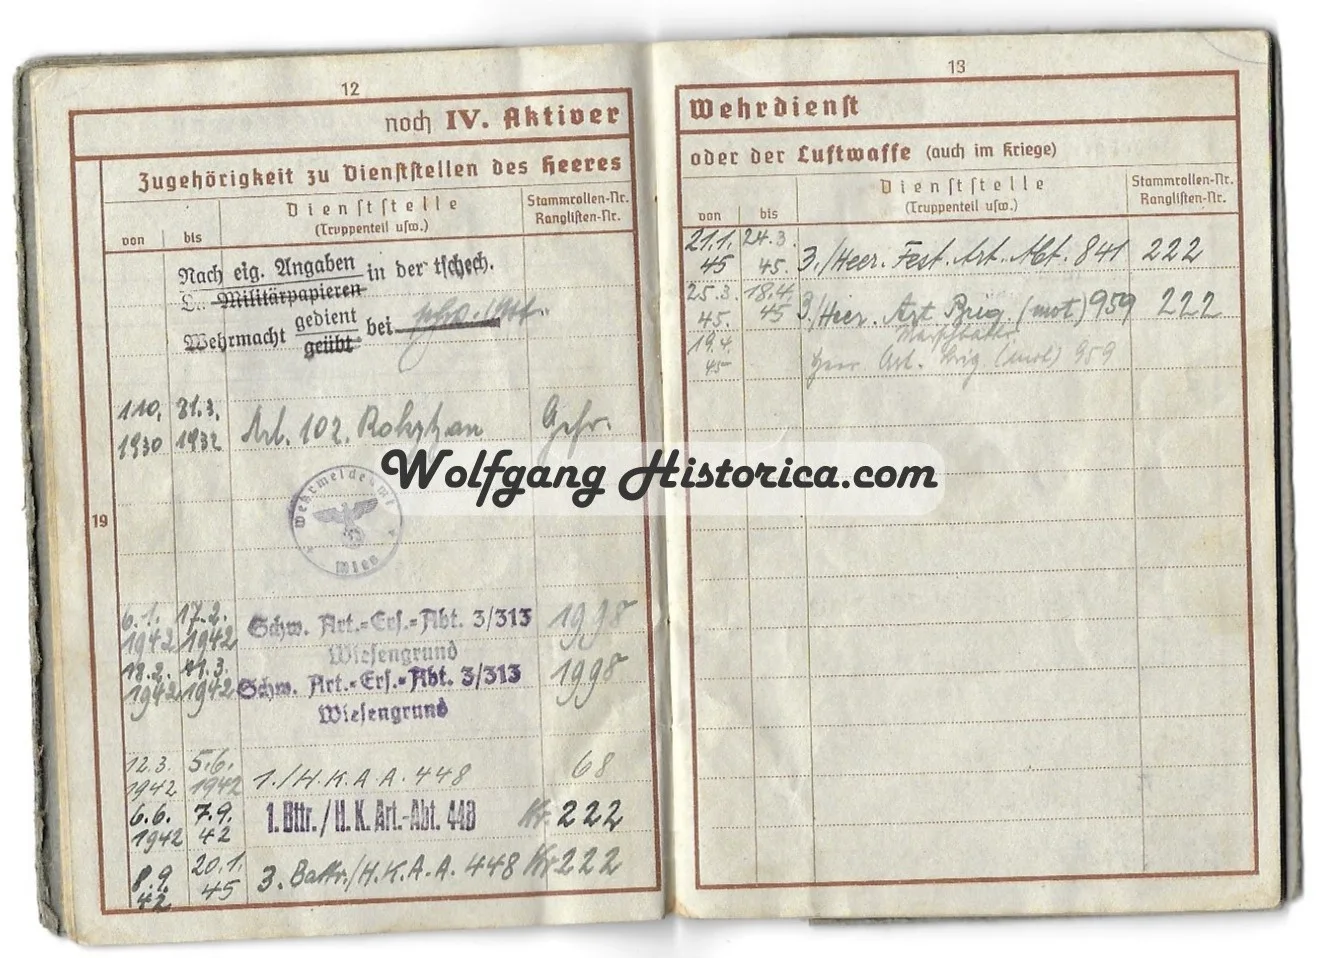 12
noch IV. Aktiver
Zugehörigkeit zu Dienststellen des Heeres
von
bis
Dienststelle
(Truppenteil usw.)
Stammrollen-Nr.
Ranglisten-Nr.
Nach eig. Angaben in der tschech.
Militärpapieren
Wehrmacht gedient bei
geübt
1.10. 1930
31.3. 1932
Art. 102. Rokytzan
Gefr.
Wehrmeldeamt
Wien
19
6.1. 1942
17.2. 1942
Schw. Art.-Ers.-Abt. 3/313
Wiesengrund
1998
18.2. 1942
11.3. 1942
Schw. Art.-Ers.-Abt. 3/313
Wiesengrund
1998
12.3. 1942
5.6. 1942
1./H.K.A.A. 448
68
6.6. 1942
7.9. 42
1. Bttr. / H. K. Art.-Abt. 448
Kr. 222
8.9. 42
20.1. 45
3. Battr./H.K.A.A. 448
Kr 222
13
Wehrdienst
oder der Luftwaffe (auch im Kriege)
von
bis
Dienststelle
(Truppenteil usw.)
Stammrollen-Nr.
Ranglisten-Nr.
21.1. 45
24.3. 45.
3./Heer. Fest. Art. Abt. 841
222
25.3. 45.
18.4. 45
3/Heer. Art Brig. (mot) 959
222
19.4. 45
Marschbattr.
Heer. Art. Brig. (mot) 959
Wolfgang Historica.com